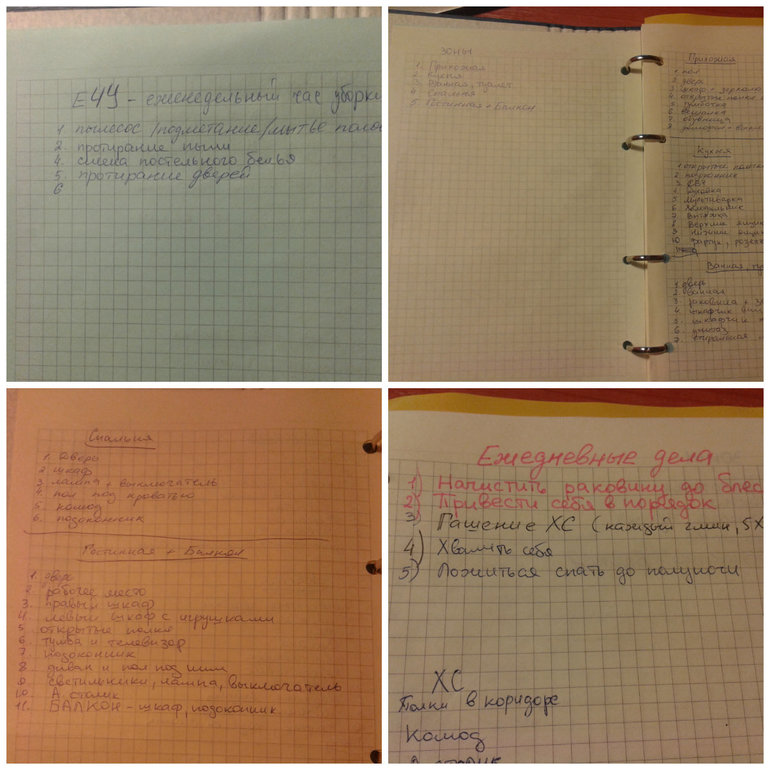 ЕЧУ - еженедельный час уборки
1 пылесос/подметание/мытье полов
2. протирание пыли
4. смена постельного белья
5. протирание дверей
6
Зоны
1. Прихожая
2. Кухня
3. Ванная, туалет
4. Спальня
5 Гостинная + Балкон
Прихожая
1. пол
2. дверь
3. зеркало
4. открытые полки
5. тумбочка
6. вешалка
7. обувница
Кухня
1. открытые полки
2. подоконник
3. СВЧ
5 мультиварка
6 Холодильник
7 Вытяжка
8 Верхние
9 нижние
10 фартук,
Ванная,
1. дверь
2. ванная
3. раковина +
4. шкафчик
5. шкафчик
6. унитаз
7. стиральная
Спальня
1. Дверь
2. шкаф
3. лампа + выключатель
4. пол под кроватью
5. комод
6. подоконник
Гостинная + Балкон
1. дверь
2. рабочее место
3. правый шкаф
4. левый шкаф с игрушками
5 открытые полки
6. тумба и телевизор
7. подоконник
8. диван и пол под ним
9. светильники, лампа, выключатель
10. А. столик
11. БАЛКОН - шкаф, подоконник
Ежедневные дела
1) Начистить раковину до блес
2) Привести себя в порядок
3) Гашение ХС (каждый 2 мин, 5Х
4) Хвалить себя
5) Ложиться спать до полуночи
ХС
Полки в коридоре
Комод
А столик